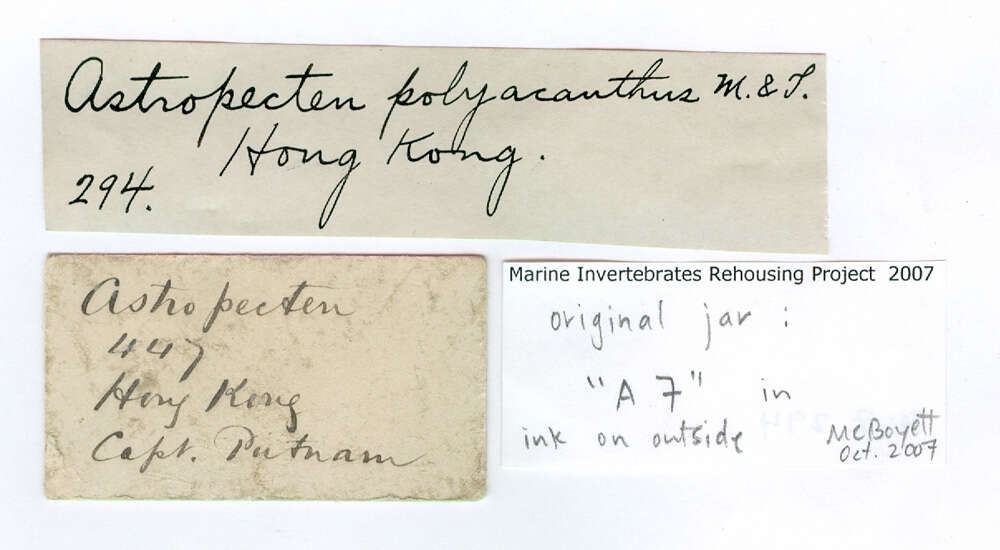 Astropecten polyacanthus M. & T.
Hong Kong.
294.
Astropecten
447
Hong Kong
Capt. Putnam
Marine Invertebrates Rehousing Project 2007
original jar :
"A 7" in
ink on outside
MCBoyett
Oct. 2007